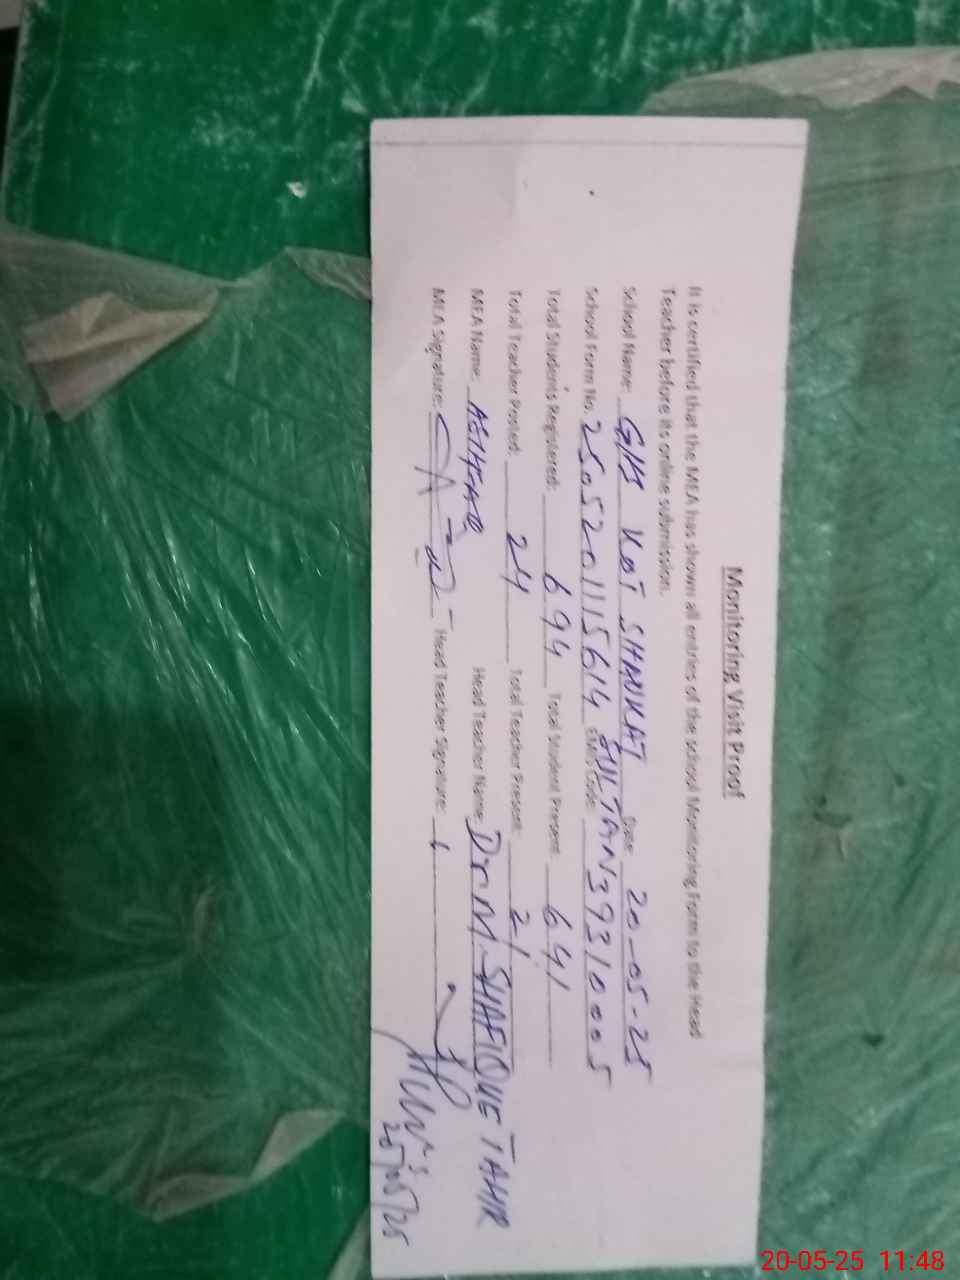 Monitoring Visit Proof
It is certified that the MEA has shown all entries of the school Monitoring Form to the Head
Teacher before its online submission.
School Name: GHS KOT SHAUKAT SULTAN Date: 20-05-25
School Form No. 2505201115614 EMIS Code: 39310005
Total Students Registered: 694 Total Student Present: 641
Total Teacher Posted: 24 Total Teacher Present: 21
MEA Name: Head Teacher Name: Dr M. SHAFIQUE TAHIR
MEA Signature: Head Teacher Signature:
20/05/25
20-05-25 11:48